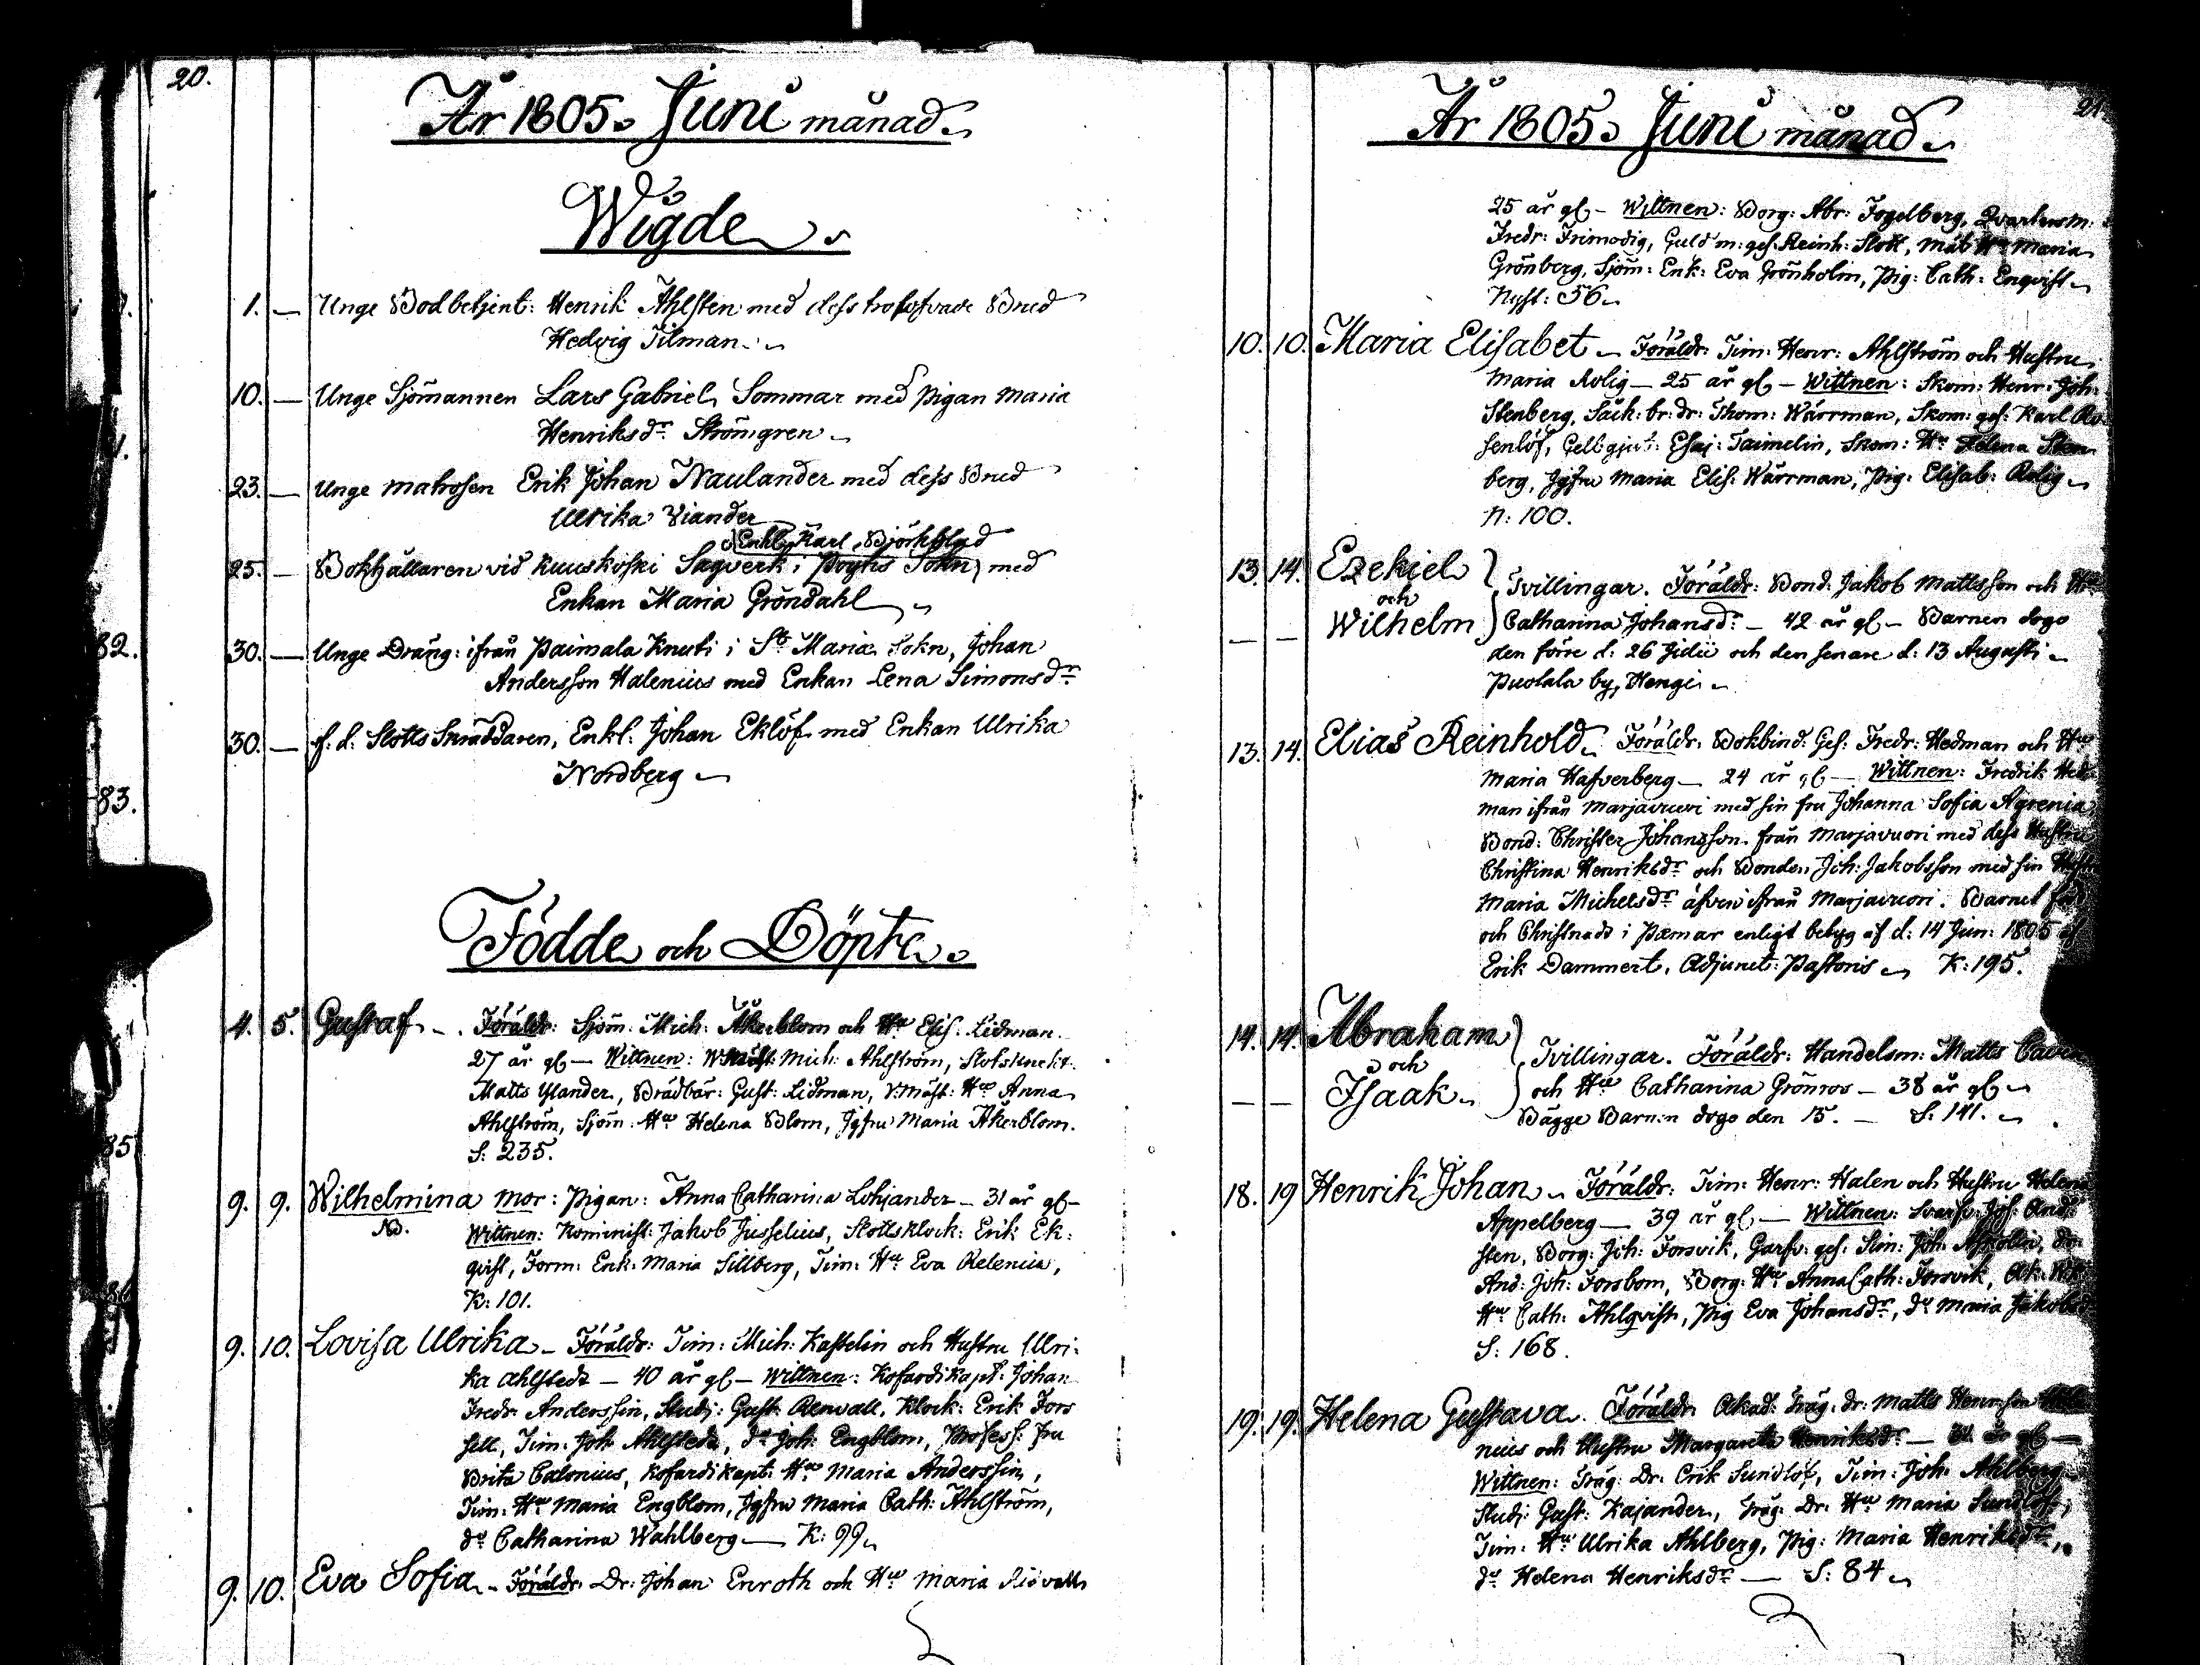 20.
År 1805. Juni månad.
Wigde.
1. — Unge Bodbetjent: Henrik Ahlsten med dess trolofvade Brud
Hedvig Tilman.
10. — Unge Sjömannen Lars Gabriel Sommar med Pigan Maria
Henriksdr Strömgren
23. — Unge Matrosen Erik Johan Naulander med dess Brud
Ulrika Viander
Enkl. Karl Björkblad
25. — Bokhållaren vid Kuuskoski Sagverk i Poytis Sokn, med
Enkan Maria Gröndahl
30. — Unge Dräng: ifrån Paimala Knuti i St. Maria Sokn, Johan
Andersson Halenius med Enkan Lena Simonsdr
30. — f. d. Slotts Skräddaren, Enkl. Johan Eklöf med Enkan Ulrika
Nordberg
Födde och Döpte.
4. 5. Gustaf. Föräldr: Sjöm: Mich: Åkerblom och Hu Elis. Lidman.
27 år gl — Wittnen: Mich: Ahlström, Slotsknekt:
Matts Ylander, Brädbär: Gust: Lidman, V:mäst: Hu Anna
Ahlström, Sjöm: Hu Helena Blom, Jgfru Maria Åkerblom.
S: 235.
9. 9. Wilhelmina Mor: Pigan: Anna Catharina Lohjander — 31 år gl —
Wittnen: Kominist: Jakob Jusselius, Slottsklock: Erik Ek:
qvist, Form: Enk: Maria Sillberg, Tim: Hu Eva Relenia,
K: 101.
9. 10. Lovisa Ulrika — Föräldr: Tim: Mich: Kastelin och Hustru Ulri:
ka Ahlstedt — 40 år gl — Wittnen: Kofardikapt: Johan
Fredr Anderssin, Studj: Gust: Renvall, Klock: Erik Fors
sell, Tim: Joh: Ahlstedt, do Joh: Engblom, Profess: fru
Brita Calonius, Kofardikapt: Hu Maria Anderssin,
Tim: Hu Maria Engblom, Jgfru Maria Cath: Ahlström,
do Catharina Wahlberg — K: 99
9. 10. Eva Sofia — Föräldr: Dr: Johan Enroth och Hu Maria
År 1805. Juni månad.
25 år gl — Wittnen: Borg: Abr: Fogelberg, Qvartersm:
Fredr: Frimodig, Guldm: ges: Reinh: Slott, Hu Maria
Grönberg, Sjöm: Enk: Eva Grönholm, Pig: Cath: Enqvist
Nyst: 56
10. 10. Maria Elisabet — Föräldr: Tim: Henr: Ahlström och Hustru
Maria Rolig — 25 år gl — Wittnen: Skom: Henr: Joh:
Stenberg, Säck: br: dr: Thom: Wärrman, Skom: ges: Karl Ro
senlöf, Gelbgjut: Esaj: Taimelin, Skom: Hu Helena Sten
berg, Jgfru Maria Elis: Wärrman, Pig: Elisab: Rolig
N: 100.
13. 14. Ezekiel
och
Wilhelm
Tvillingar. Föräldr: Bond: Jakob Mattsson och Hu
Catharina Johansdr — 42 år gl — Barnen dogo
den förre d: 26 Julii och den senare d: 13 Augusti
Puolala by, Hengi.
13. 14. Elias Reinhold. Föräldr: Bokbind: Ges: Fredr: Hedman och Hu
Maria Hafverberg — 24 år gl — Wittnen: Fredrik Hed
man ifrån Marjavuori med sin fru Johanna Sofia Agrenia
Bond: Christer Johansson från Marjavuori med dess Hustru
Christina Henriksdr och Bonden Joh: Jakobsson med sin
Maria Michelsdr äfven ifrån Marjavuori. Barnet född
och Christnadt i Pæmar enligt betyg af d: 14 Jun: 1805 af
Erik Dammert, Adjunct: Pastoris K: 195.
14. 14. Abraham
och
Isaak
Tvillingar. Föräldr: Handelsm: Matts
och Hu Catharina Grönroos — 38 år gl
Bägge Barnen dogo den 15. — S: 141.
18. 19 Henrik Johan — Föräldr: Tim: Henr: Halen och Hustru Helena
Appelberg — 39 år gl — Wittnen: Svarfv: Joh: And:
sten, Borg: Joh: Forsvik, Garfv: ges: Sim: Joh:
And: Joh: Forsbom, Borg: Hu Anna Cath: Forsvik,
Hu Cath: Ahlqvist, Pig Eva Johansdr, do Maria Jakobsd
S: 168.
19. 19. Helena Gustava. Föräldr: Akad: Träg: dr: Matts Henrsson
nius och Hustru Margareta Henriksdr — 31 år gl —
Wittnen: Träg: Dr: Erik Sundlöf, Tim: Joh: Ahlberg
Studj: Gust: Kajander, Träg: Dr: Hu Maria Sundlöf,
Tim: Hu Ulrika Ahlberg, Pig: Maria Henriksdr,
do Helena Henriksdr — S: 84